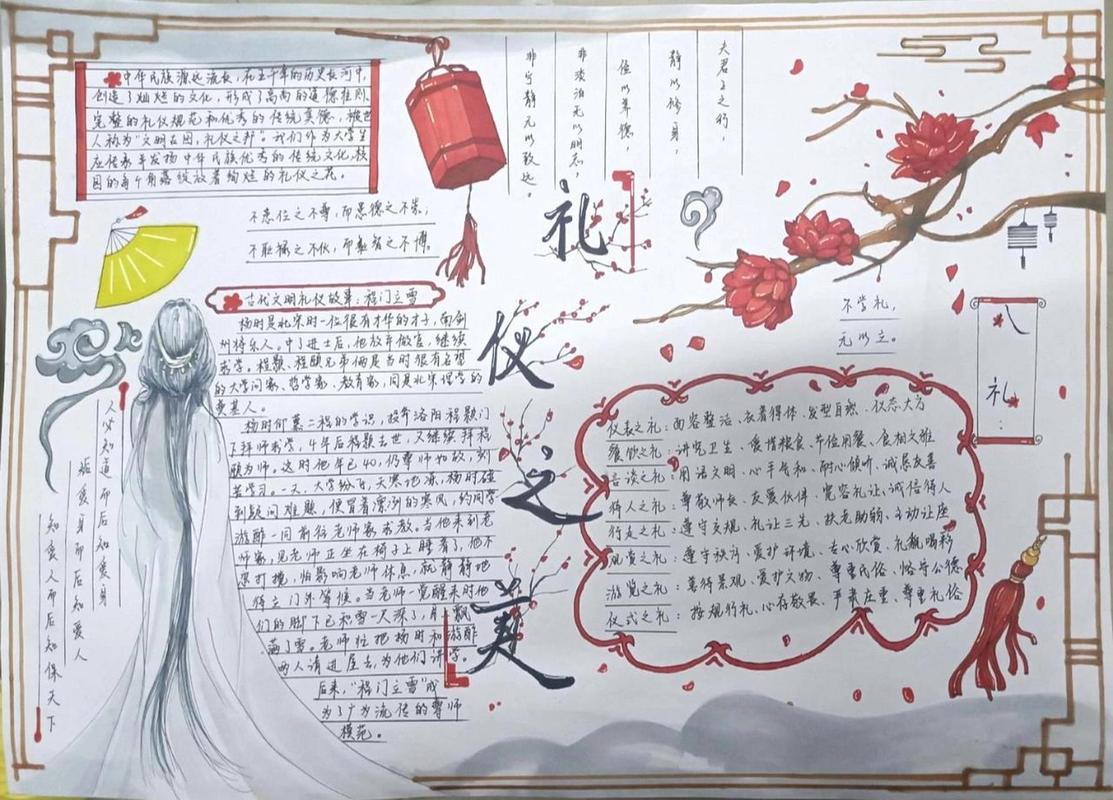 中华民族源远流长，在五千年的历史长河中，
创造了灿烂的文化，形成了高尚的道德准则、
完整的礼仪规范和优秀的传统美德，被世
人称为“文明古国，礼仪之邦”。我们作为大学生
应传承并发扬中华民族优秀的传统文化，校
园的每个角落绽放着绚烂的礼仪之花。
夫君子之行，
静以修身，
俭以养德，
非淡泊无以明志，
非宁静无以致远。
不患位之不尊，而患德之不崇，
不耻禄之不伙，而耻智之不博。
礼
仪
之
美
古代文明礼仪故事：程门立雪
杨时是北宋时一位很有才华的才子，南剑
州将乐人。中了进士后，他放弃做官，继续
求学。程颢、程颐兄弟俩是当时很有名望
的大学问家、哲学家、教育家，同是北宋理学的
奠基人。
杨时仰慕二程的学识，投奔洛阳程颢门
下拜师求学，4年后程颢去世，又继续拜程
颐为师。这时他年已40，仍尊师如故，刻
苦学习。一天，大雪纷飞，天寒地冻，杨时碰
到疑问难题，便冒着凛冽的寒风，约同学
游酢一同前往老师家求教。当他来到老
师家，见老师正坐在椅子上睡着了，他不
忍打搅，怕影响老师休息，就静静地
侍立门外等候。当老师一觉醒来时他
们的脚下已积雪一尺深了，身上飘
满了雪。老师忙把杨时和游酢
两人请进屋去，为他们讲学。
后来，“程门立雪”成
为了广为流传的尊师
模范。
人必知道而后知爱身
知爱身而后知爱人
知爱人而后知保天下
不学礼，
无以立。
八
礼
仪表之礼：面容整洁、衣着得体、发型自然、仪态大方
餐饮之礼：讲究卫生、爱惜粮食、节俭用餐、食相文雅
言谈之礼：用语文明、心平气和、耐心倾听、诚恳友善
待人之礼：尊敬师长、友爱伙伴、宽容礼让、诚信待人
行走之礼：遵守交规、礼让三先、扶老助弱、主动让座
观赏之礼：遵守秩序、爱护环境、专心欣赏、礼貌喝彩
游览之礼：善待景观、爱护文物、尊重民俗、恪守公德
仪式之礼：按规行礼、心存敬畏、严肃庄重、尊重礼俗